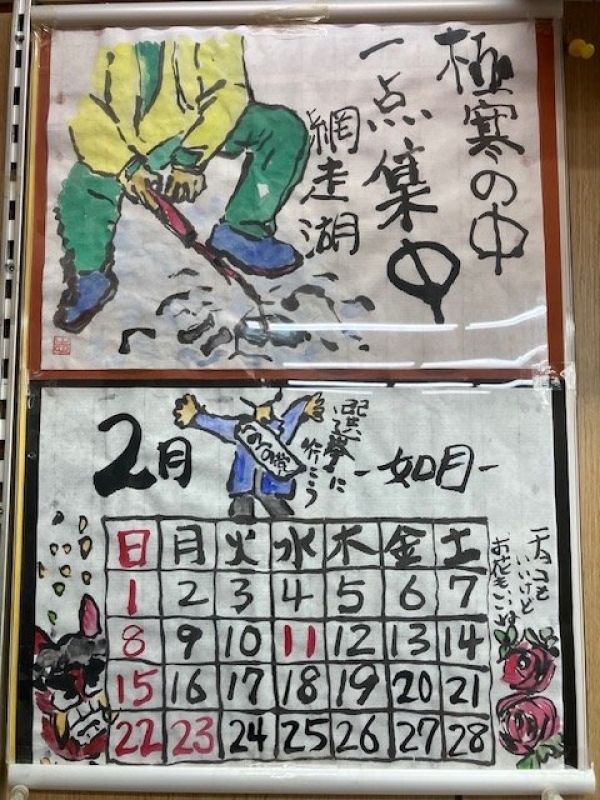 極寒の中
一点集中
網走湖
2月
選挙に
行こう
-如月-
日 月 火 水 木 金 土
1 2 3 4 5 6 7
8 9 10 11 12 13 14
15 16 17 18 19 20 21
22 23 24 25 26 27 28
チョコも
いいけど
お花もいいね